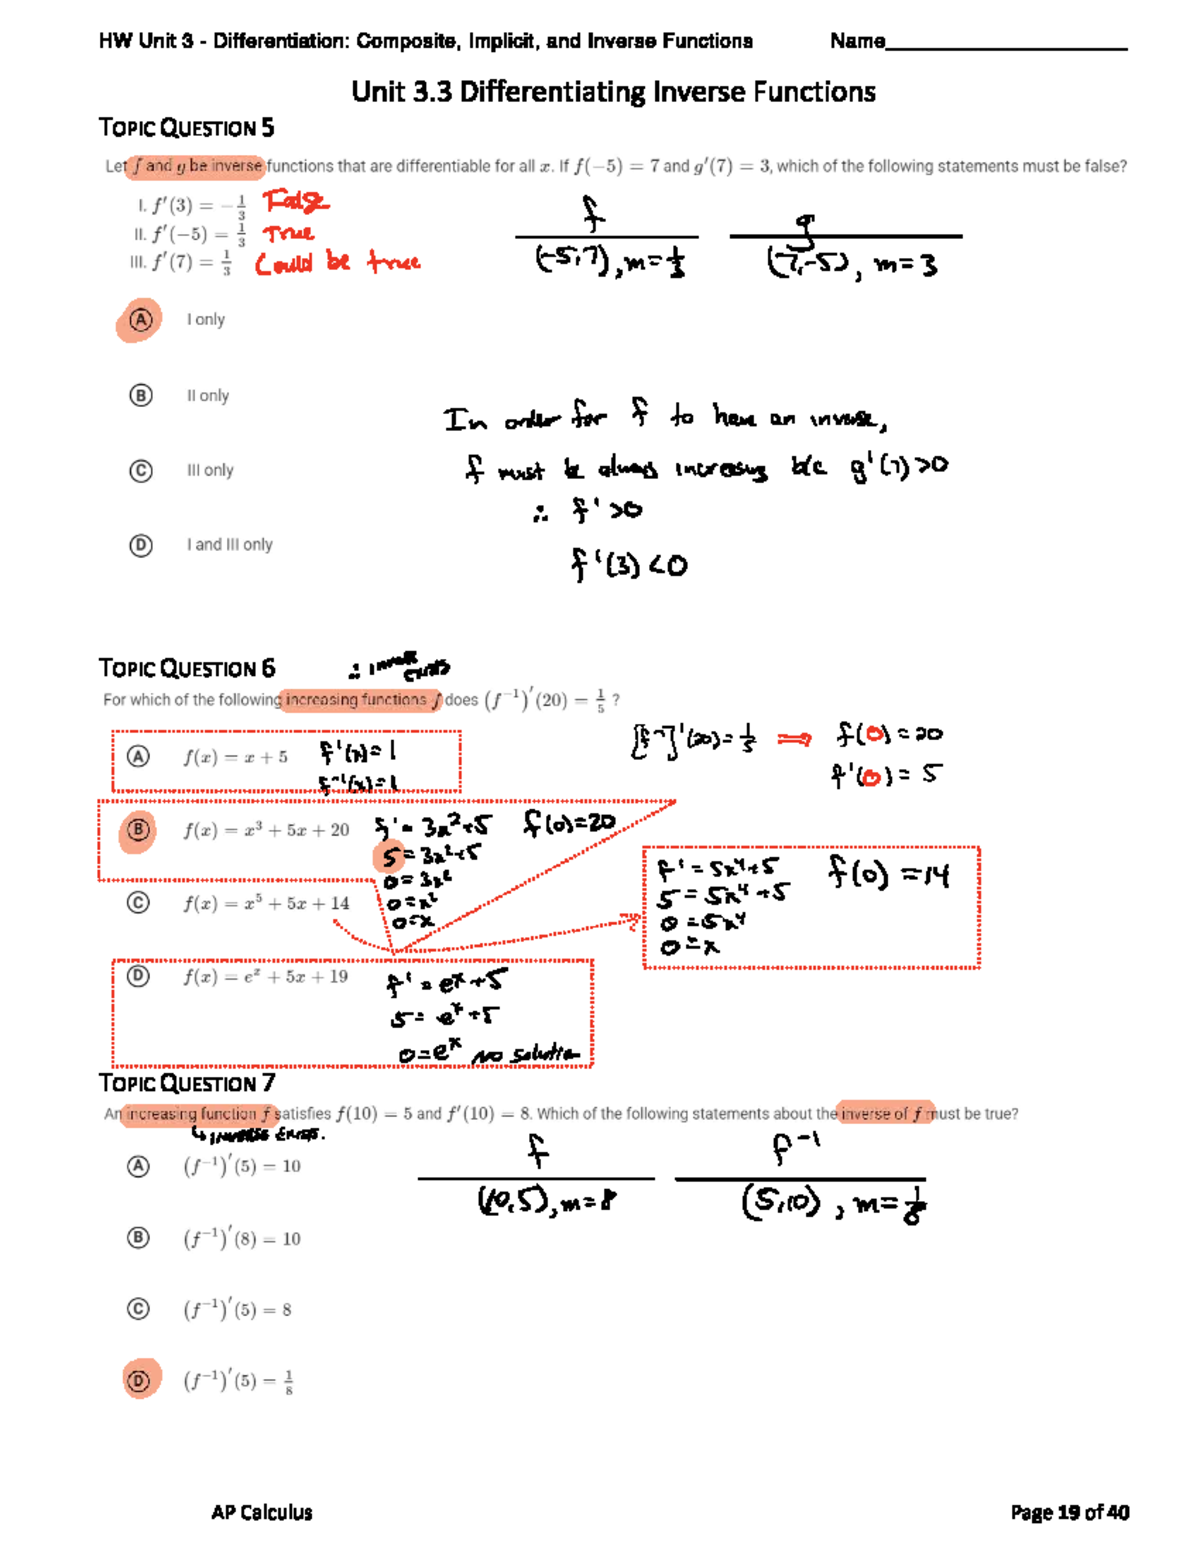 HW Unit 3 - Differentiation: Composite, Implicit, and Inverse Functions Name
Unit 3.3 Differentiating Inverse Functions
TOPIC QUESTION 5
Let f and g be inverse functions that are differentiable for all x. If f(−5) = 7 and g′(7) = 3, which of the following statements must be false?
I. f′(3) = −1/3 False
II. f′(−5) = 1/3 True
III. f′(7) = 1/3 Could be true
f g
(-5,7), m=1/3 (7,-5), m=3
A I only
B II only
In order for f to have an inverse,
C III only
f must be always increasing b/c g'(7)>0
∴ f'>0
D I and III only
f'(3)<0
TOPIC QUESTION 6
∴ inverse exists
For which of the following increasing functions f does (f⁻¹)′(20) = 1/5 ?
[f⁻¹]'(20)=1/5 ⇒ f(0)=20
f'(0)=5
A f(x) = x + 5 f'(x)=1
f⁻¹(x)=1
B f(x) = x³ + 5x + 20 f'=3x²+5 f(0)=20
5=3x²+5
0=3x²
C f(x) = x⁵ + 5x + 14 0=x²
0=x
f'=5x⁴+5 f(0)=14
5=5x⁴+5
0=5x⁴
0=x
D f(x) = eˣ + 5x + 19 f'=eˣ+5
5=eˣ+5
0=eˣ no solution
TOPIC QUESTION 7
An increasing function f satisfies f(10) = 5 and f′(10) = 8. Which of the following statements about the inverse of f must be true?
↳ INVERSE EXISTS.
f f⁻¹
A (f⁻¹)′(5) = 10
(10,5), m=8 (5,10), m=1/8
B (f⁻¹)′(8) = 10
C (f⁻¹)′(5) = 8
D (f⁻¹)′(5) = 1/8
AP Calculus Page 19 of 40